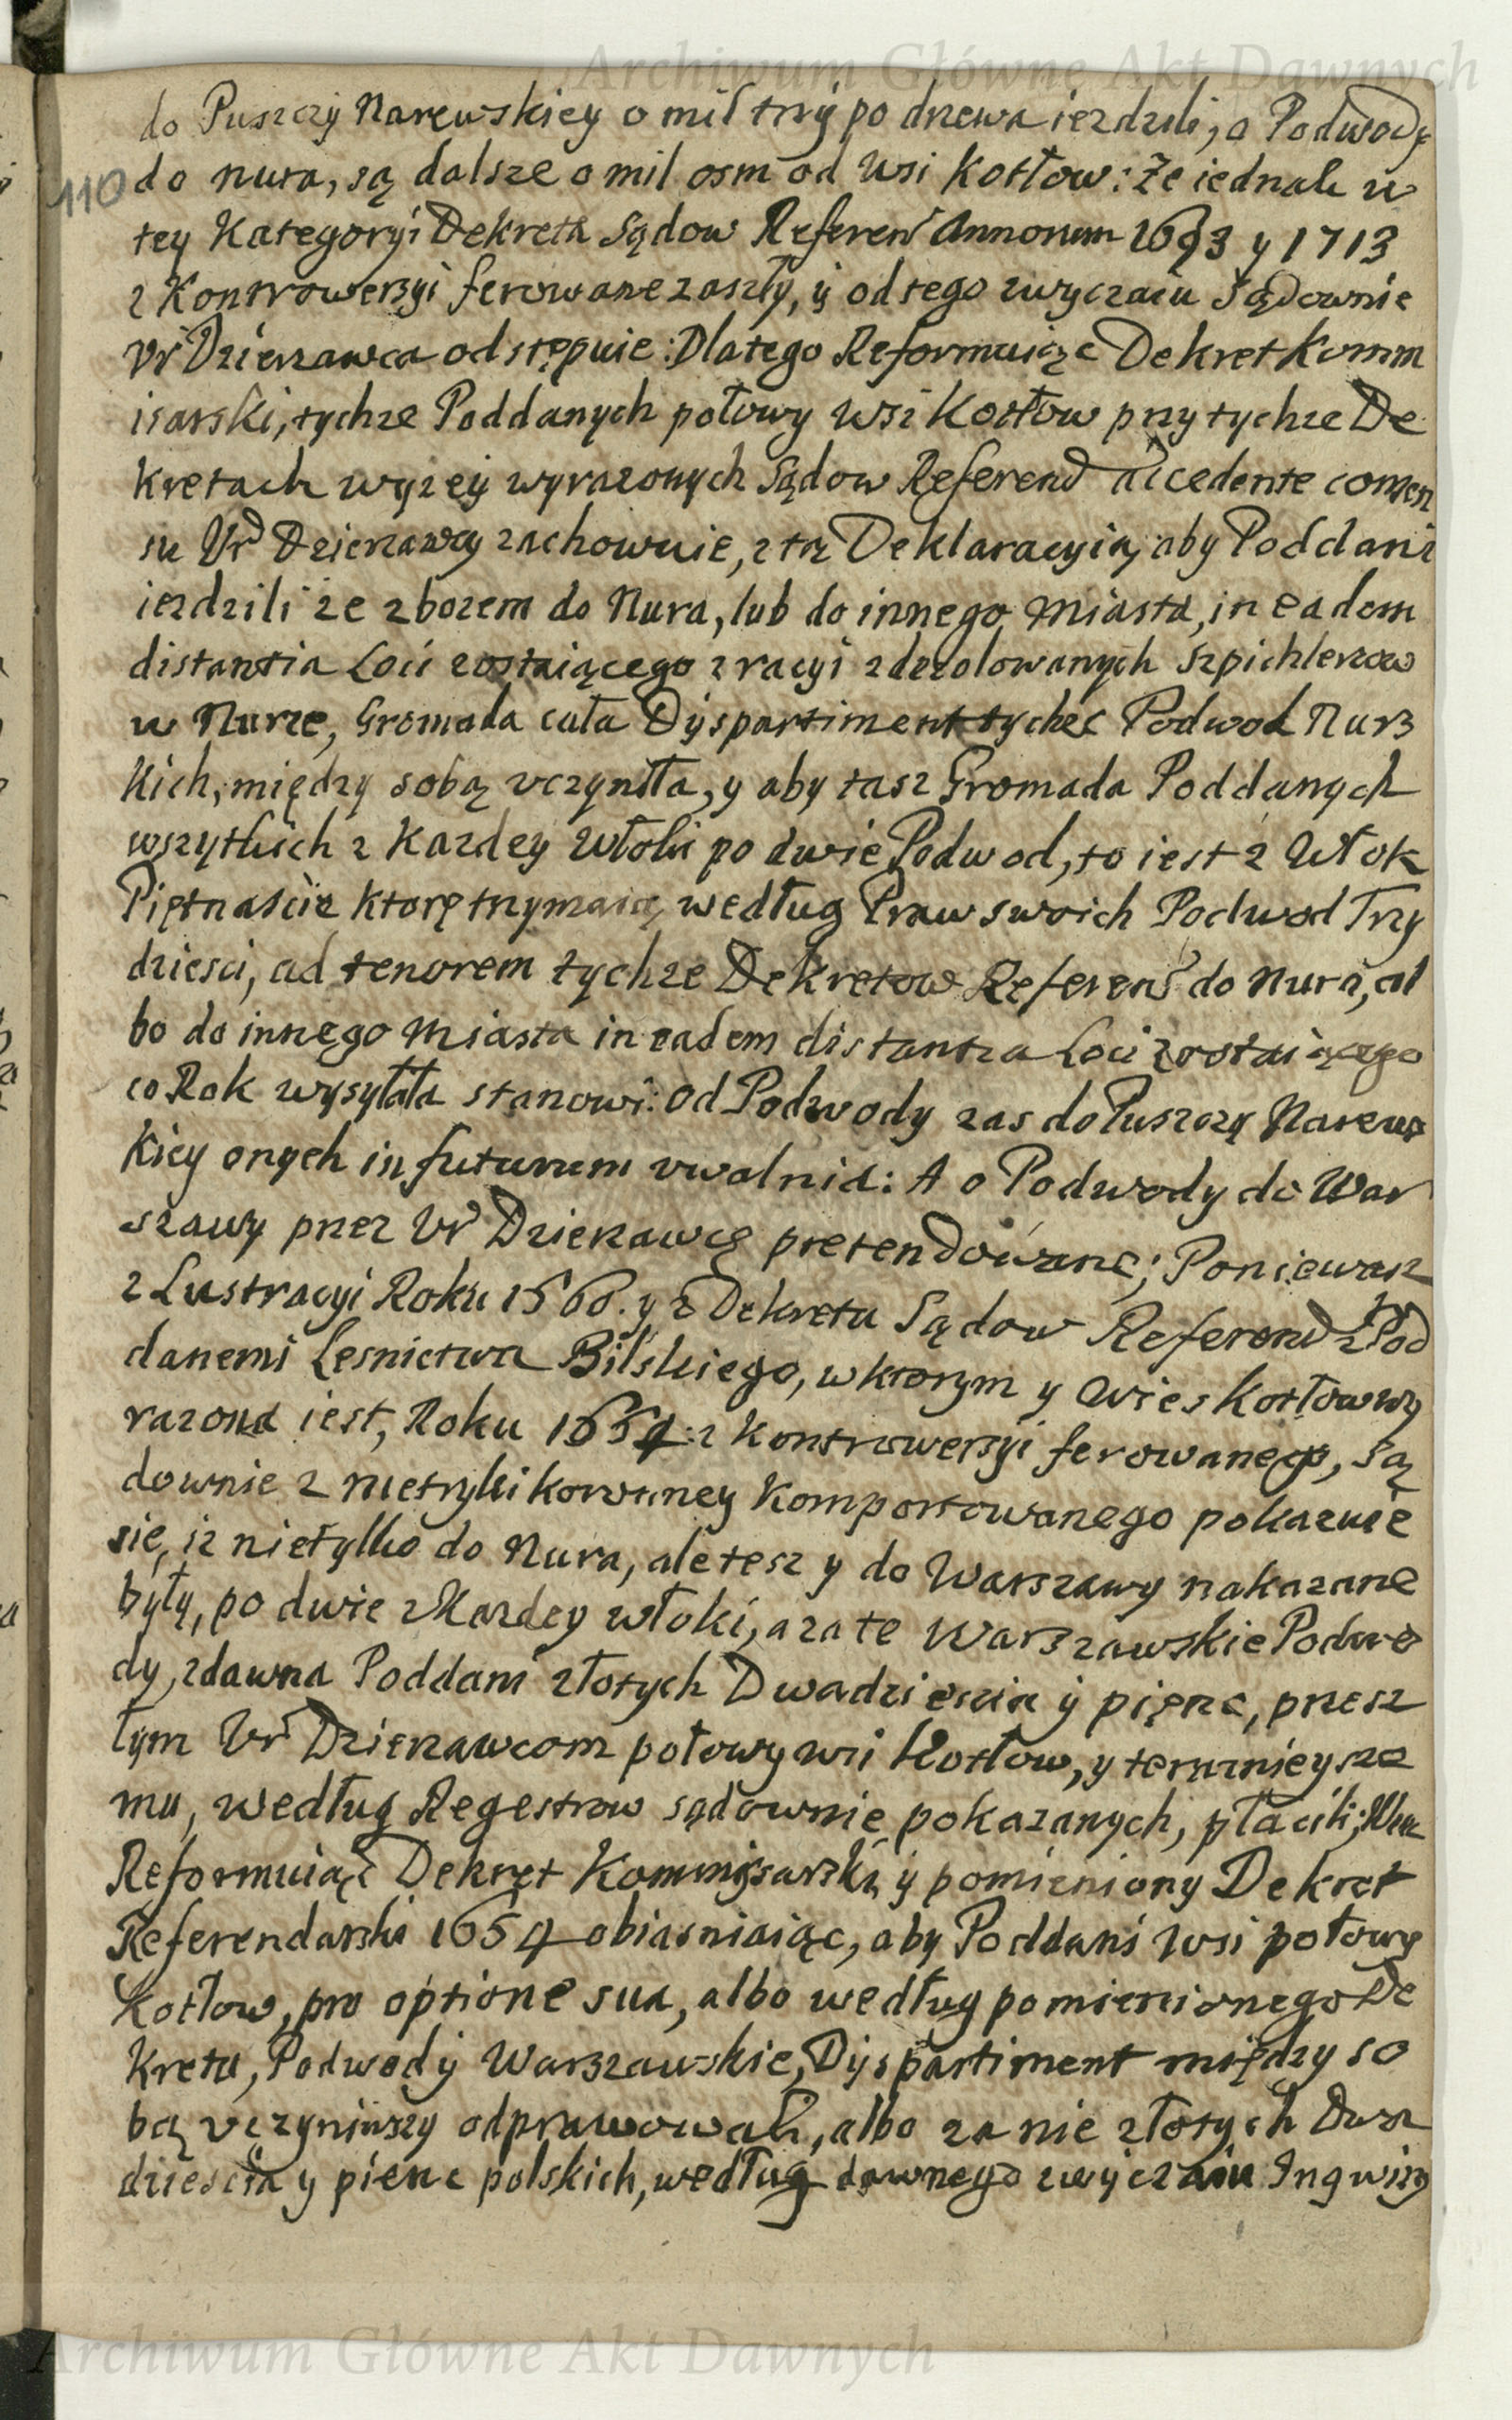 Archiwum Główne Akt Dawnych
do Puszczy Narewskiey o mil trzy po drzewa iezdzili, a Podwody
110
do nura, są dalsze o mil osm od wsi Kotłow: Ze iednak w
tey Kategoryi Dekreta Sądow Referen Annorum 1693 y 1713
z Kontrowersyi ferowane zaszły, y od tego zwyczaiu Sądownie
Ur Dzierzawca odstępuie: Dlatego Reformuiąc Dekret Komm
isarski, tychze Poddanych połowy wsi Kotłow przy tychze De
kretach wyzey wyrazonych Sądow Referend accedente consen
su Ur Dzierzawcy zachowuie, z tą Deklaracyią, aby Poddani
iezdzili ze zbozem do Nura, lub do innego Miasta, in eadem
distantia Loci zostaiącego z racyi zdezolowanych szpichlerzow
w Nurze, Gromada cała Dyspartiment tychze Podwod Nurs
kich, między sobą uczyniła, y aby tasz Gromada Poddanych
wszytkich z Kazdey Włoki po dwie Podwod, to iest z Włok
Piętnascie ktore trzymaią, według Praw swoich Podwod Trzy
dziesci, ad tenorem tychze Dekretow Referend do Nura, al
bo do innego Miasta in eadem distantia Loci zostaiącego
co Rok wysyłała stanowi: od Podwody zas do Puszczy Narews
kiey onych in futurum uwalnia: A o Podwody do War
szawy przez Ur Dzierzawcę pretendowane; Poniewasz
z Lustracyi Roku 1560. y z Dekretu Sądow Referend z Pod
danemi Lesnictwa Bilskiego, w ktorym y wies Kotłow wy
razona iest, Roku 1654 z Kontrowersyi ferowanego, Są
downie z metryki korunney komportowanego pokazuie
sie, iz nietylko do Nura, ale tesz y do Warszawy nakazane
były, po dwie z Kazdey włoki, a za te Warszawskie Podwo
dy, zdawna Poddani złotych Dwadziescia y pięnc, przesz
łym Ur Dzierzawcom połowy wsi Kotłow, y teraznieysze
mu, według Regestrow sądownie pokazanych, płacili;
Reformuiąc Dekret Kommisarski, y pomieniony Dekret
Referendarski 1654 obiasniaiąc, aby Poddani wsi połowy
Kotłow, pro optione sua, albo według pomienionego De
kretu, Podwody Warszawskie, Dyspartiment między so
bą uczyniwszy odprawowali, albo za nie złotych Dwa
dziescia y pienc polskich, według dawnego zwyczaiu Inqwizy
Archiwum Główne Akt Dawnych